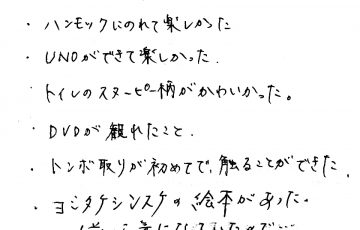 ・ハンモックにのれて楽しかった
・UNOができて楽しかった.
・トイレのスヌーピー柄がかわいかった。
・DVDが観れたこと.
・トンボ取りが初めてで、触ることができた.
・ヨシタケシンスケの絵本があった.